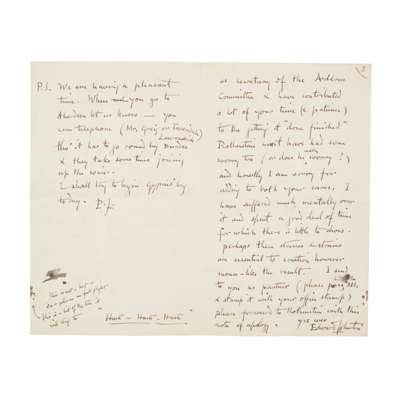 P.S. We are having a pleasant
time. When you go to
Aberdeen let us know — you
can telephone (Mrs. Greig on
tho' it has to go round by Dundee
& they take some time joining
up the wires.
I shall try to begin
to day.
This is not a
Hush - Hush - Hush
2
as secretary of the Ardern
Committee & have contributed
a lot of your time (& patience)
to the getting it "done finished"
Rothenstein must have had some
worry too (or does he really worry?)
and honestly I am sorry for
adding to both your cares. I
have suffered much mentally over
it and spent a good deal of time
for which there is little to show.
perhaps these stresses & strains
are essential to creation however
the result. I send
to you as partner (please
& stamp it with your office stamp)
please forward to Rothenstein with this
note of apology. yrs ever
Edward Johnston